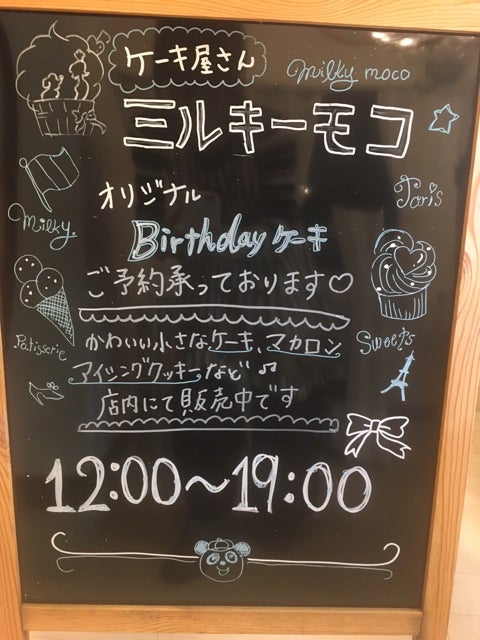 ケーキ屋さん
milky moco
ミルキーモコ
オリジナル
Milky.
Paris
Birthday ケーキ
ご予約承っております♡
かわいい小さなケーキ、マカロン
Patisserie
Sweets
アイシングクッキーなど♫
店内にて販売中です
12:00〜19:00